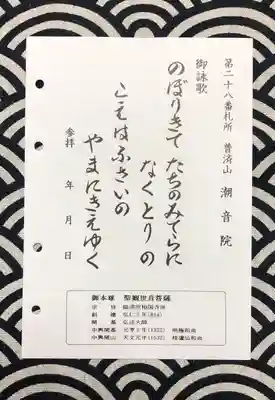 第二十八番札所 普済山 潮音院
御詠歌
のぼりきて たちのみてらに
なくとりの
こえはふさいの
やまにきえゆく
参拝 年 月 日
御本尊 聖観世音菩薩
宗旨 臨済宗相国寺派
創建 弘仁三年
開基 弘法大師
中興開基
中興開山 天文元年(1532)